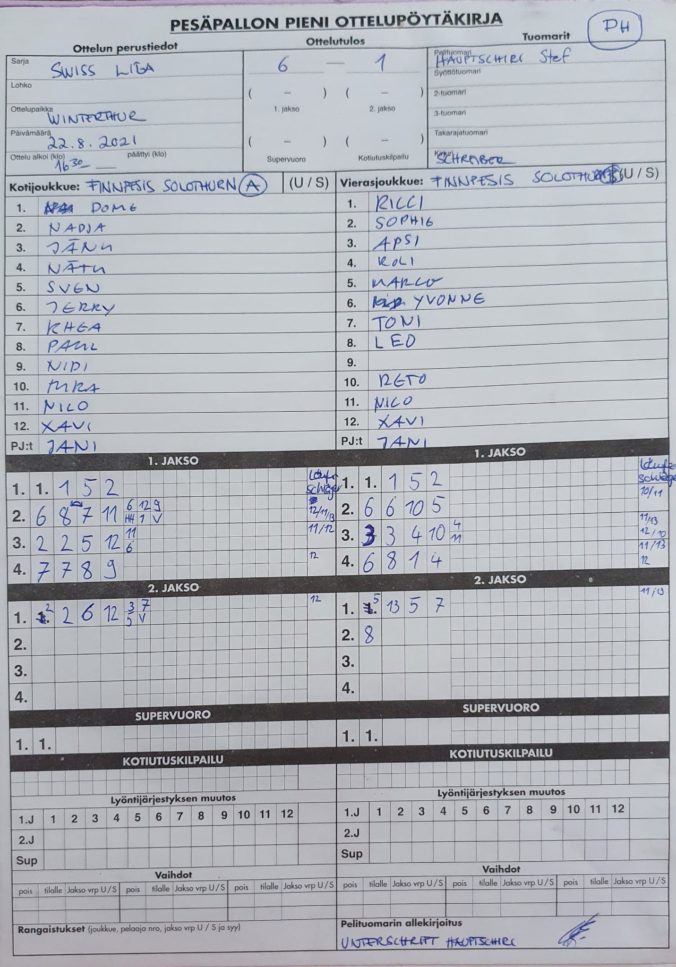 PESÄPALLON PIENI OTTELUPÖYTÄKIRJA
PH
Ottelun perustiedot
Ottelutulos
Tuomarit
Sarja SWISS LIGA
Lohko
Ottelupaikka WINTERTHUR
Päivämäärä 22.8.2021
Ottelu alkoi (klo) 16 30 päättyi (klo)
6 — 1
( – ) ( – )
1. jakso 2. jakso
( – ) ( – )
Supervuoro Kotiutuskilpailu
Pelituomari HAUPTSCHIRI Stef
Syöttötuomari
2-tuomari
3-tuomari
Takarajatuomari
Kirjuri SCHREIBER
Kotijoukkue: FINNPESIS SOLOTHURN A (U / S)
1. DOME
2. NADJA
3. JÄNU
4. NÄTU
5. SVEN
6. JERRY
7. RHEA
8. PAUL
9. NIDI
10. MRA
11. NICO
12. XAVI
PJ:t JANI
Vierasjoukkue: FINNPESIS SOLOTHURN (U / S)
1. RICCI
2. SOPHIE
3. APSI
4. ROLI
5. MARCO
6. YVONNE
7. TONI
8. LEO
9.
10. RETO
11. NICO
12. XAVI
PJ:t JANI
1. JAKSO
1. 1. 1 5 2
2. 6 8 7 11 6 12 9 1 V 12/11/13
3. 2 2 5 12 11 6 11/12
4. 7 7 8 9 12
2. JAKSO
1. 2 2 6 12 3 7 5 V 12
2.
3.
4.
SUPERVUORO
1. 1.
KOTIUTUSKILPAILU
Lyöntijärjestyksen muutos
1.J 1 2 3 4 5 6 7 8 9 10 11 12
2.J
Sup
Vaihdot
pois tilalle Jakso vrp U/S pois tilalle Jakso vrp U/S pois tilalle Jakso vrp U/S
Rangaistukset (joukkue, pelaaja nro, jakso vrp U / S ja syy)
1. JAKSO
1. 1. 1 5 2 10/11
2. 6 6 10 5 11/13
3. 3 3 4 10 4 11 12/10
11/13
4. 6 8 1 4 12
2. JAKSO
1. 5 13 5 7 11/13
2. 8
3.
4.
SUPERVUORO
1. 1.
KOTIUTUSKILPAILU
Lyöntijärjestyksen muutos
1.J 1 2 3 4 5 6 7 8 9 10 11 12
2.J
Sup
Vaihdot
pois tilalle Jakso vrp U/S pois tilalle Jakso vrp U/S pois tilalle Jakso vrp U/S
Pelituomarin allekirjoitus
UNTERSCHRIFT HAUPTSCHIRI